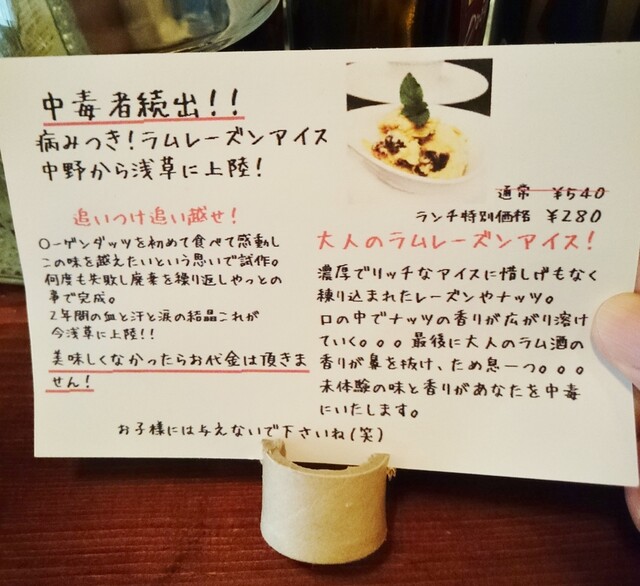 中毒者続出!!
病みつき!ラムレーズンアイス
中野から浅草に上陸!
追いつけ追い越せ!
○ーゲンダッツを初めて食べて感動し
この味を越えたいという思いで試作。
何度も失敗し廃棄を繰り返しやっとの
事で完成。
2年間の血と汗と涙の結晶これが
今浅草に上陸!!
美味しくなかったらお代金は頂きま
せん!
通常 ¥540
ランチ特別価格 ¥280
大人のラムレーズンアイス!
濃厚でリッチなアイスに惜しげもなく
練り込まれたレーズンやナッツ。
口の中でナッツの香りが広がり溶け
ていく。。。最後に大人のラム酒の
香りが鼻を抜け、ため息一つ。。。
未体験の味と香りがあなたを中毒
にいたします。
お子様には与えないで下さいね(笑)